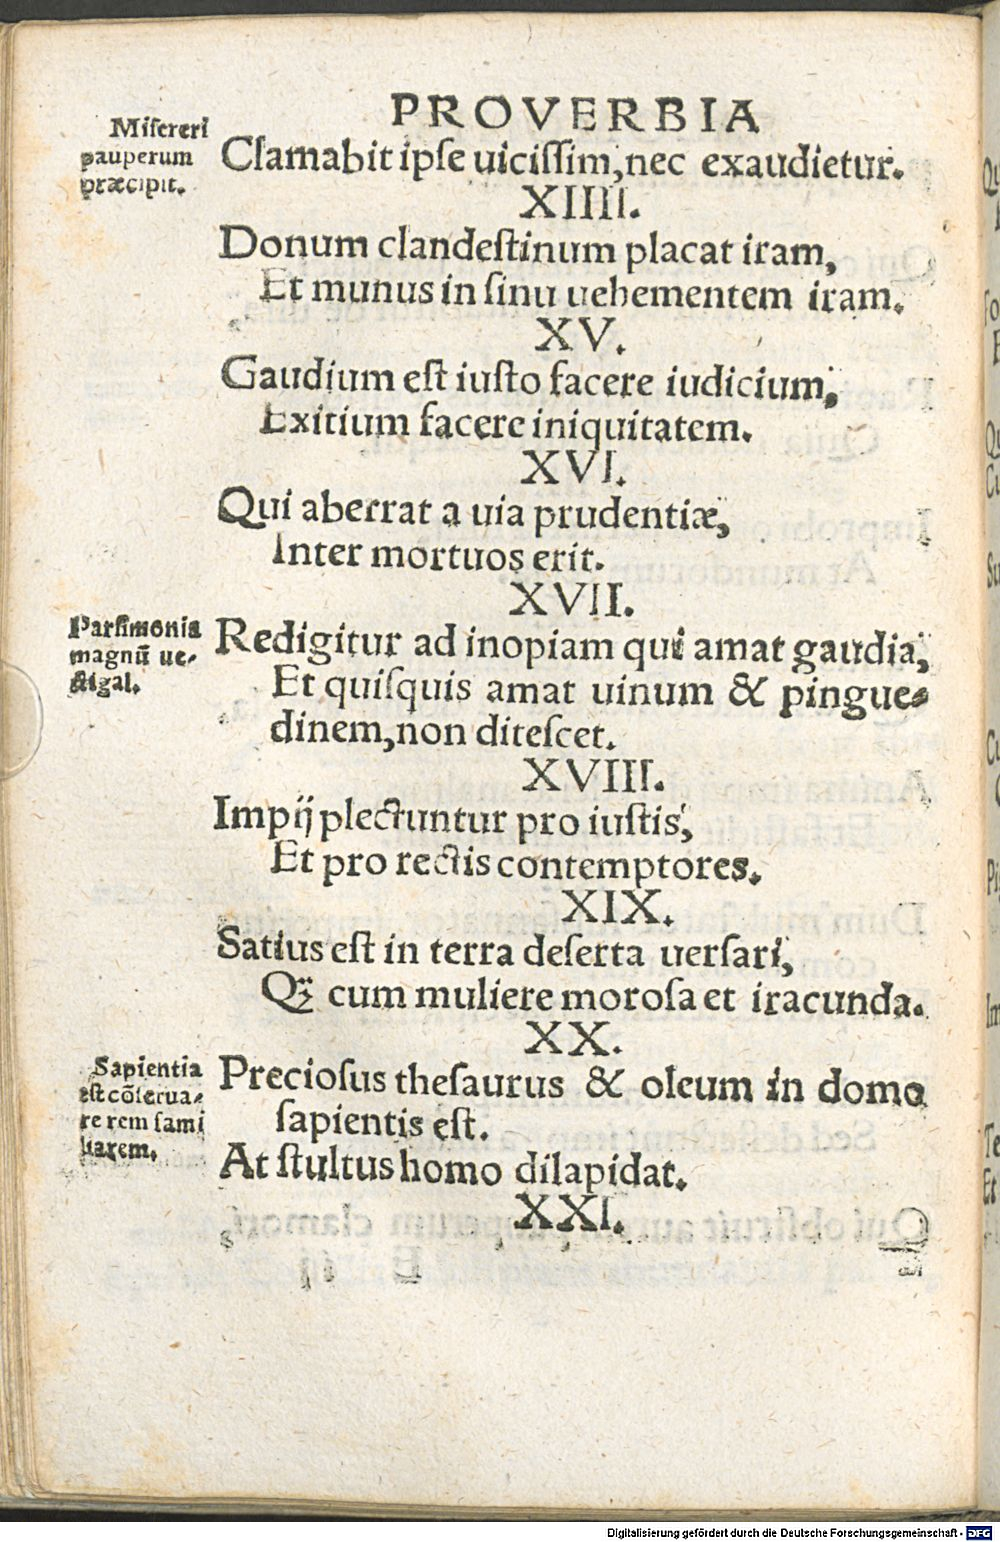 PROVERBIA
Miſereri
pauperum
præcipit.
Clamabit ipſe uiciſſim, nec exaudietur.
XIIII.
Donum clandeſtinum placat iram,
Et munus in ſinu uehementem iram.
XV.
Gaudium eſt iuſto facere iudicium,
Exitium facere iniquitatem.
XVI.
Qui aberrat a uia prudentiæ,
Inter mortuos erit.
XVII.
Parſimonia
magnū ue-
ctigal.
Redigitur ad inopiam qui amat gaudia,
Et quiſquis amat uinum & pingue-
dinem, non diteſcet.
XVIII.
Impij plectuntur pro iuſtis,
Et pro rectis contemptores.
XIX.
Satius eſt in terra deſerta uerſari,
Qꝫ cum muliere moroſa et iracunda.
XX.
Sapientia
eſt cōſerua-
re rem fami
liarem.
Precioſus theſaurus & oleum in domo
ſapientis eſt.
At ſtultus homo dilapidat.
XXI.
Digitalisierung gefördert durch die Deutsche Forschungsgemeinschaft - DFG